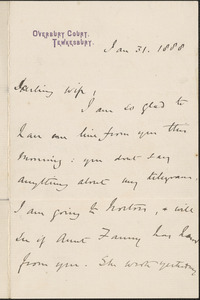 Overbury Court,
Tewkesbury.
Jan 31. 1888
Darling Wife,
I am so glad to
have one line from you this
morning: you don't say
anything about my telegram.
I am going to Norton, & will
see if Aunt Fanny has heard
from you. She wrote yesterday